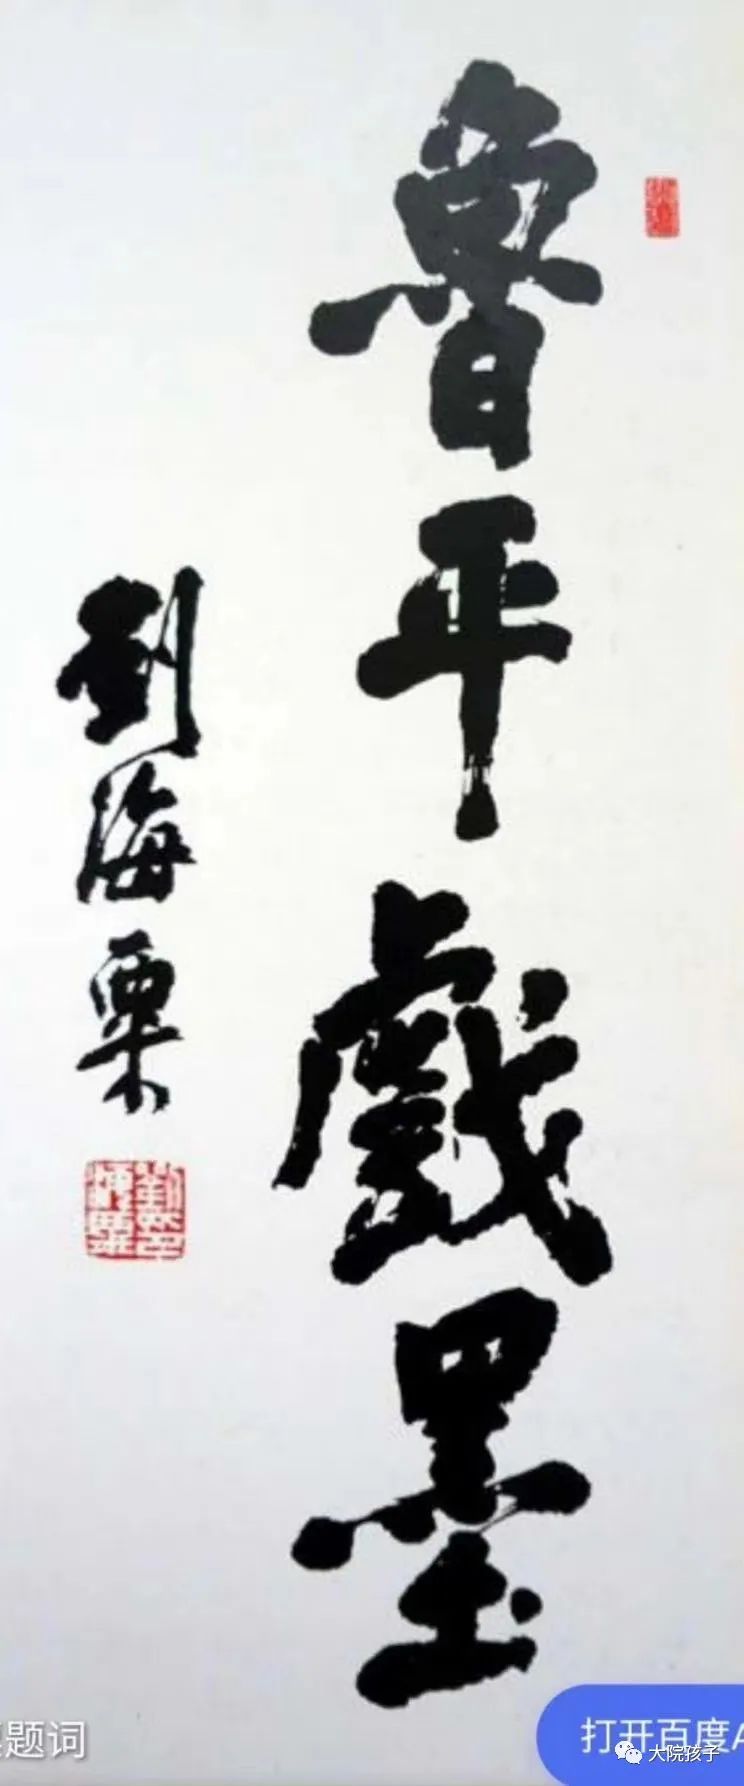 魯平戲墨
劉海粟
題词
打开百度A
大院孩子